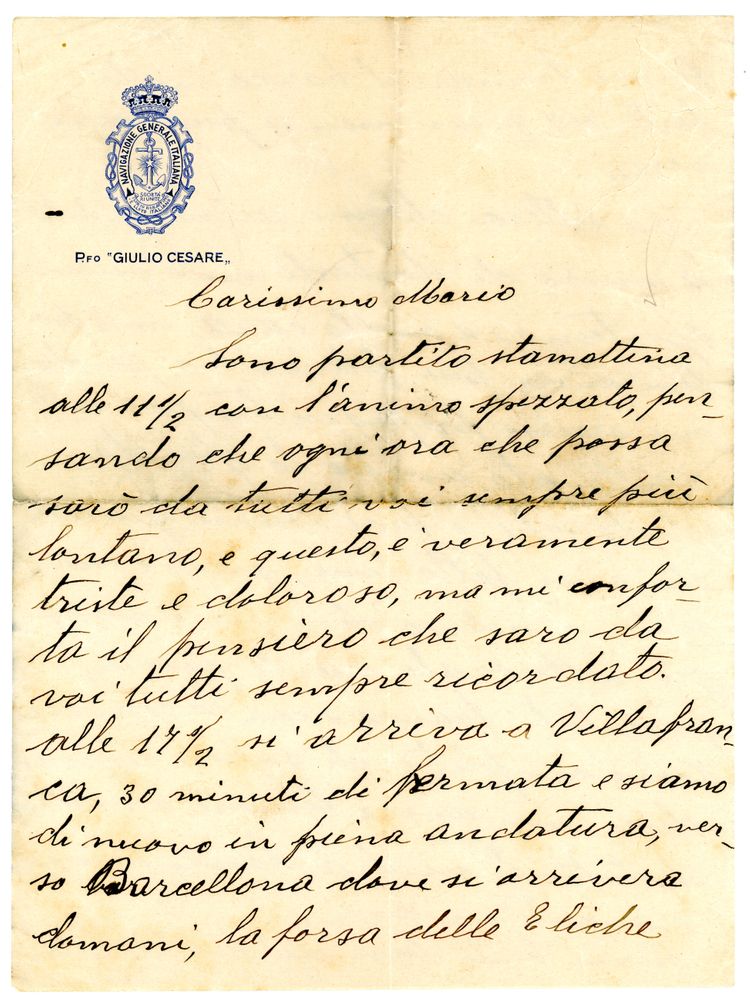 NAVIGAZIONE GENERALE ITALIANA
SOCIETÀ
RIUNITE
P.FO "GIULIO CESARE„
Carissimo Mario
Sono partito stamattina
alle 11 1/2 con l'ánimo spezzato, pen-
sando che ogni ora che passa
sarò da tutti voi sempre più
lontano, e questo, é veramente
triste e doloroso, ma mi confor-
ta il pensièro che saro da
voi tutti sempre ricordato.
alle 17 1/2 si arriva a Villafran-
ca, 30 minuti di fermata e siamo
di nuovo in piena andatura, ver-
so Barcellona dove si arrivera
domani, la forsa delle Eliche